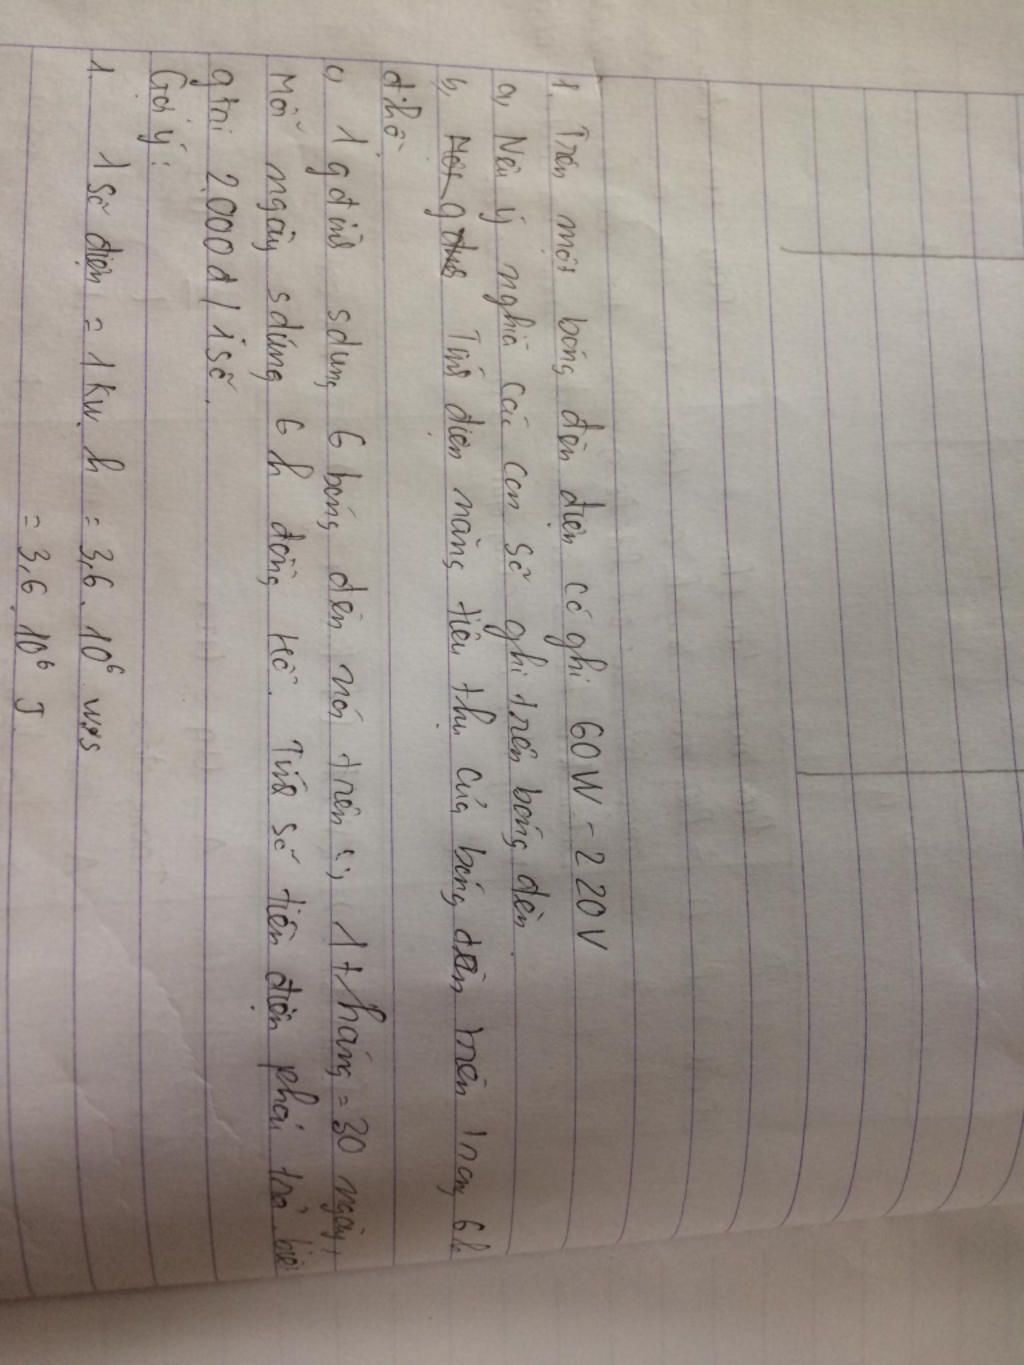 1. Trên một bóng đèn điện có ghi 60W - 220V
a, Nêu ý nghĩa các con số ghi trên bóng đèn.
b, Tính điện năng tiêu thụ của bóng đèn trên trong 6h
đ.hồ.
c, 1 gđình sdung 6 bóng đèn nói trên 1 tháng = 30 ngày,
Mỗi ngày sdụng 6 h đồng hồ. Tính số tiền điện phải trả biết
gtri 2.000đ / 1 số.
Gợi ý:
1. 1 số điện = 1 kw.h = 3,6.10⁶ w.s
= 3,6.10⁶ J